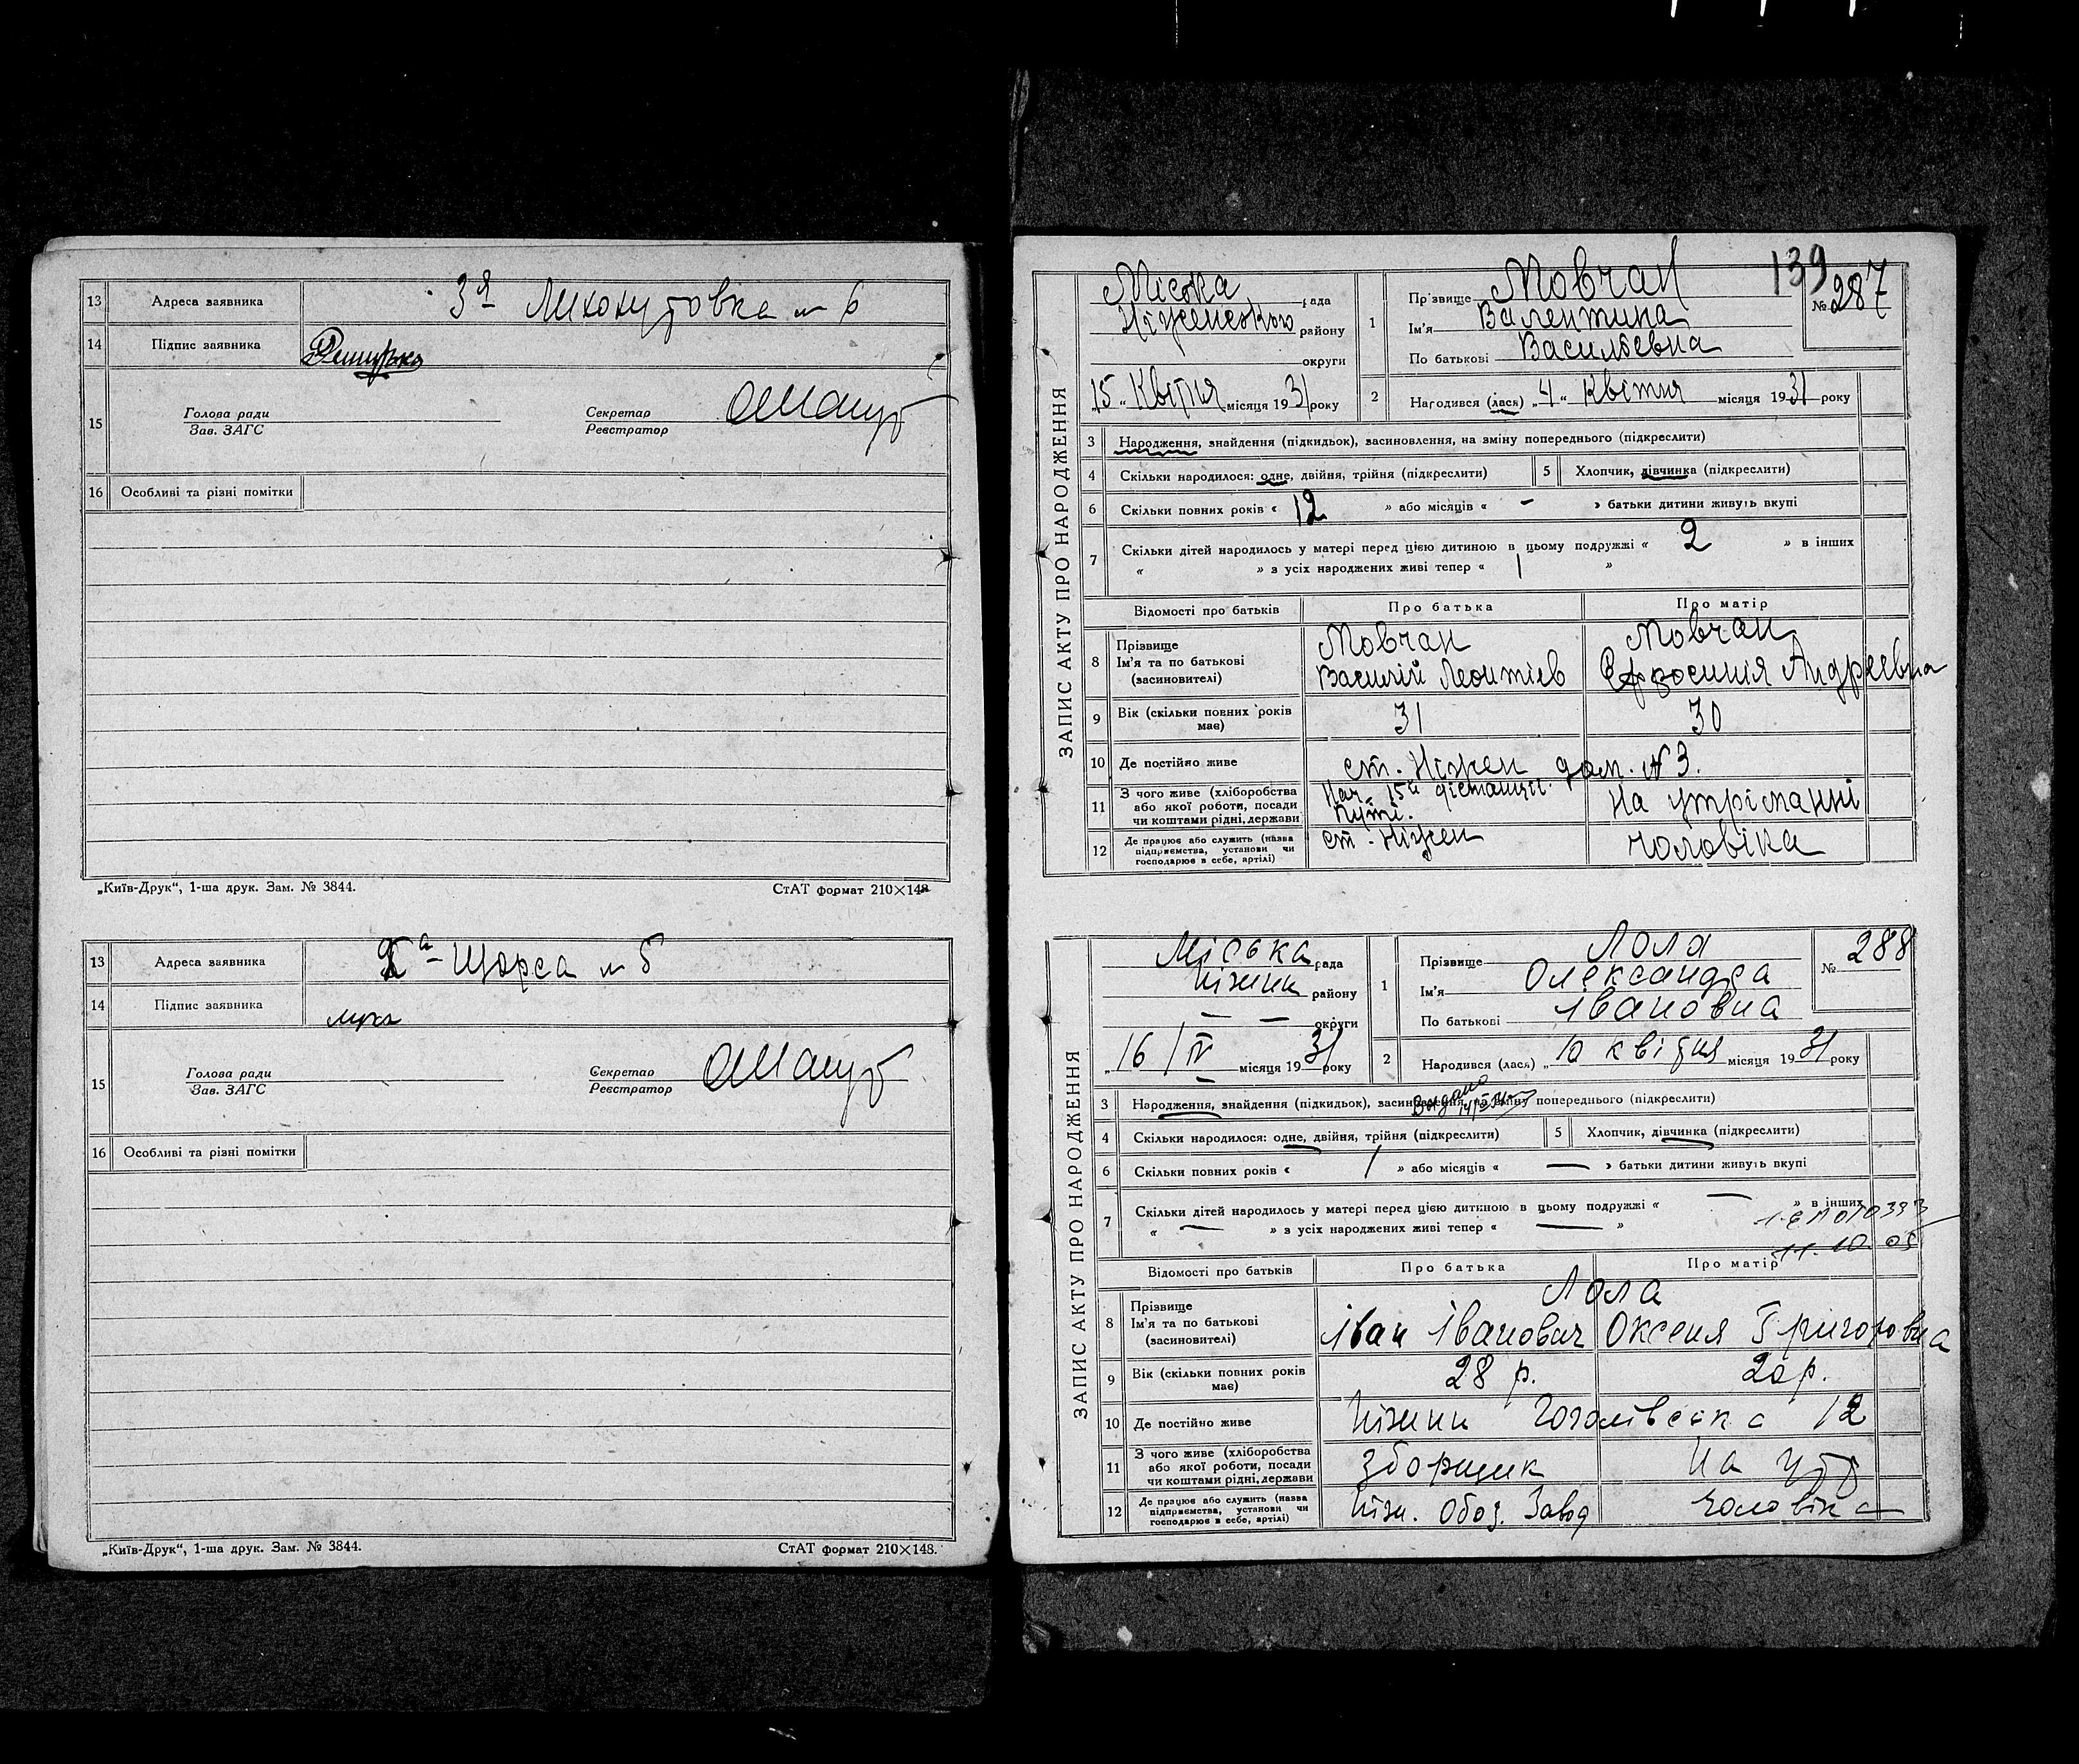 13 Адреса заявника 3я м 6
14 Підпис заявника
15 Голова ради Секретар
Зав. ЗАГС Реєстратор
16 Особливі та різні помітки
„Київ-Друк“, 1-ша друк. Зам. № 3844. СтАТ формат 210×148
13 Адреса заявника Щорса м 5
14 Підпис заявника
15 Голова ради Секретар
Зав. ЗАГС Реєстратор
16 Особливі та різні помітки
„Київ-Друк“, 1-ша друк. Зам. № 3844. СтАТ формат 210×148.
139
ЗАПИС АКТУ ПРО НАРОДЖЕННЯ
Міська рада
Ніженського району
округи
„15“ Квітня місяця 1931 року
1 Прізвище Мовчан
Ім'я Валентина
По батькові Васильевна
№ 287
2 Народився (лася) „4“ Квітня місяця 1931 року
3 Народження, знайдення (підкидьок), засиновлення, на зміну попереднього (підкреслити)
4 Скільки народилося: одне, двійня, трійня (підкреслити) 5 Хлопчик, дівчинка (підкреслити)
6 Скільки повних років « 12 » або місяців « – » батьки дитини живуть вкупі
7 Скільки дітей народилось у матері перед цією дитиною в цьому подружжі « 2 » в інших
« » з усіх народжених живі тепер « 1 »
Відомості про батьків Про батька Про матір
8 Прізвище Мовчан Мовчан
Ім'я та по батькові Василій Леонтіев Ефросинія Андреевна
(засиновителі)
9 Вік (скільки повних років має) 31 30
10 Де постійно живе ст. Ніжен дом. №3.
11 З чого живе (хліборобства або якої роботи, посади чи коштами рідні, держави Нач. 15й дістанції Путі. На утріманні
12 Де працює або служить (назва підприємства, установи чи господарює в себе, артілі) ст. Ніжен чоловіка
ЗАПИС АКТУ ПРО НАРОДЖЕННЯ
Міська рада
Ніжин району
– – округи
„16/IV місяця 1931 року
1 Прізвище Лола
Ім'я Олександра
По батькові Івановна
№ 288
2 Народився (лася) „10 квітня місяця 1931 року
3 Народження, знайдення (підкидьок), засиновлення, на зміну попереднього (підкреслити)
4 Скільки народилося: одне, двійня, трійня (підкреслити) 5 Хлопчик, дівчинка (підкреслити)
6 Скільки повних років « 1 » або місяців « — » батьки дитини живуть вкупі
7 Скільки дітей народилось у матері перед цією дитиною в цьому подружжі « — » в інших
« — » з усіх народжених живі тепер « — »
11.10.05
Відомості про батьків Про батька Про матір
8 Прізвище Лола
Ім'я та по батькові Іван Іванович Оксеня Григоровна
(засиновителі)
9 Вік (скільки повних років має) 28 р. 20 р.
10 Де постійно живе Ніжин Гоголівська 12
11 З чого живе (хліборобства або якої роботи, посади чи коштами рідні, держави Зборщик На утр
12 Де працює або служить (назва підприємства, установи чи господарює в себе, артілі) Ніж. Обоз. Завод чоловіка